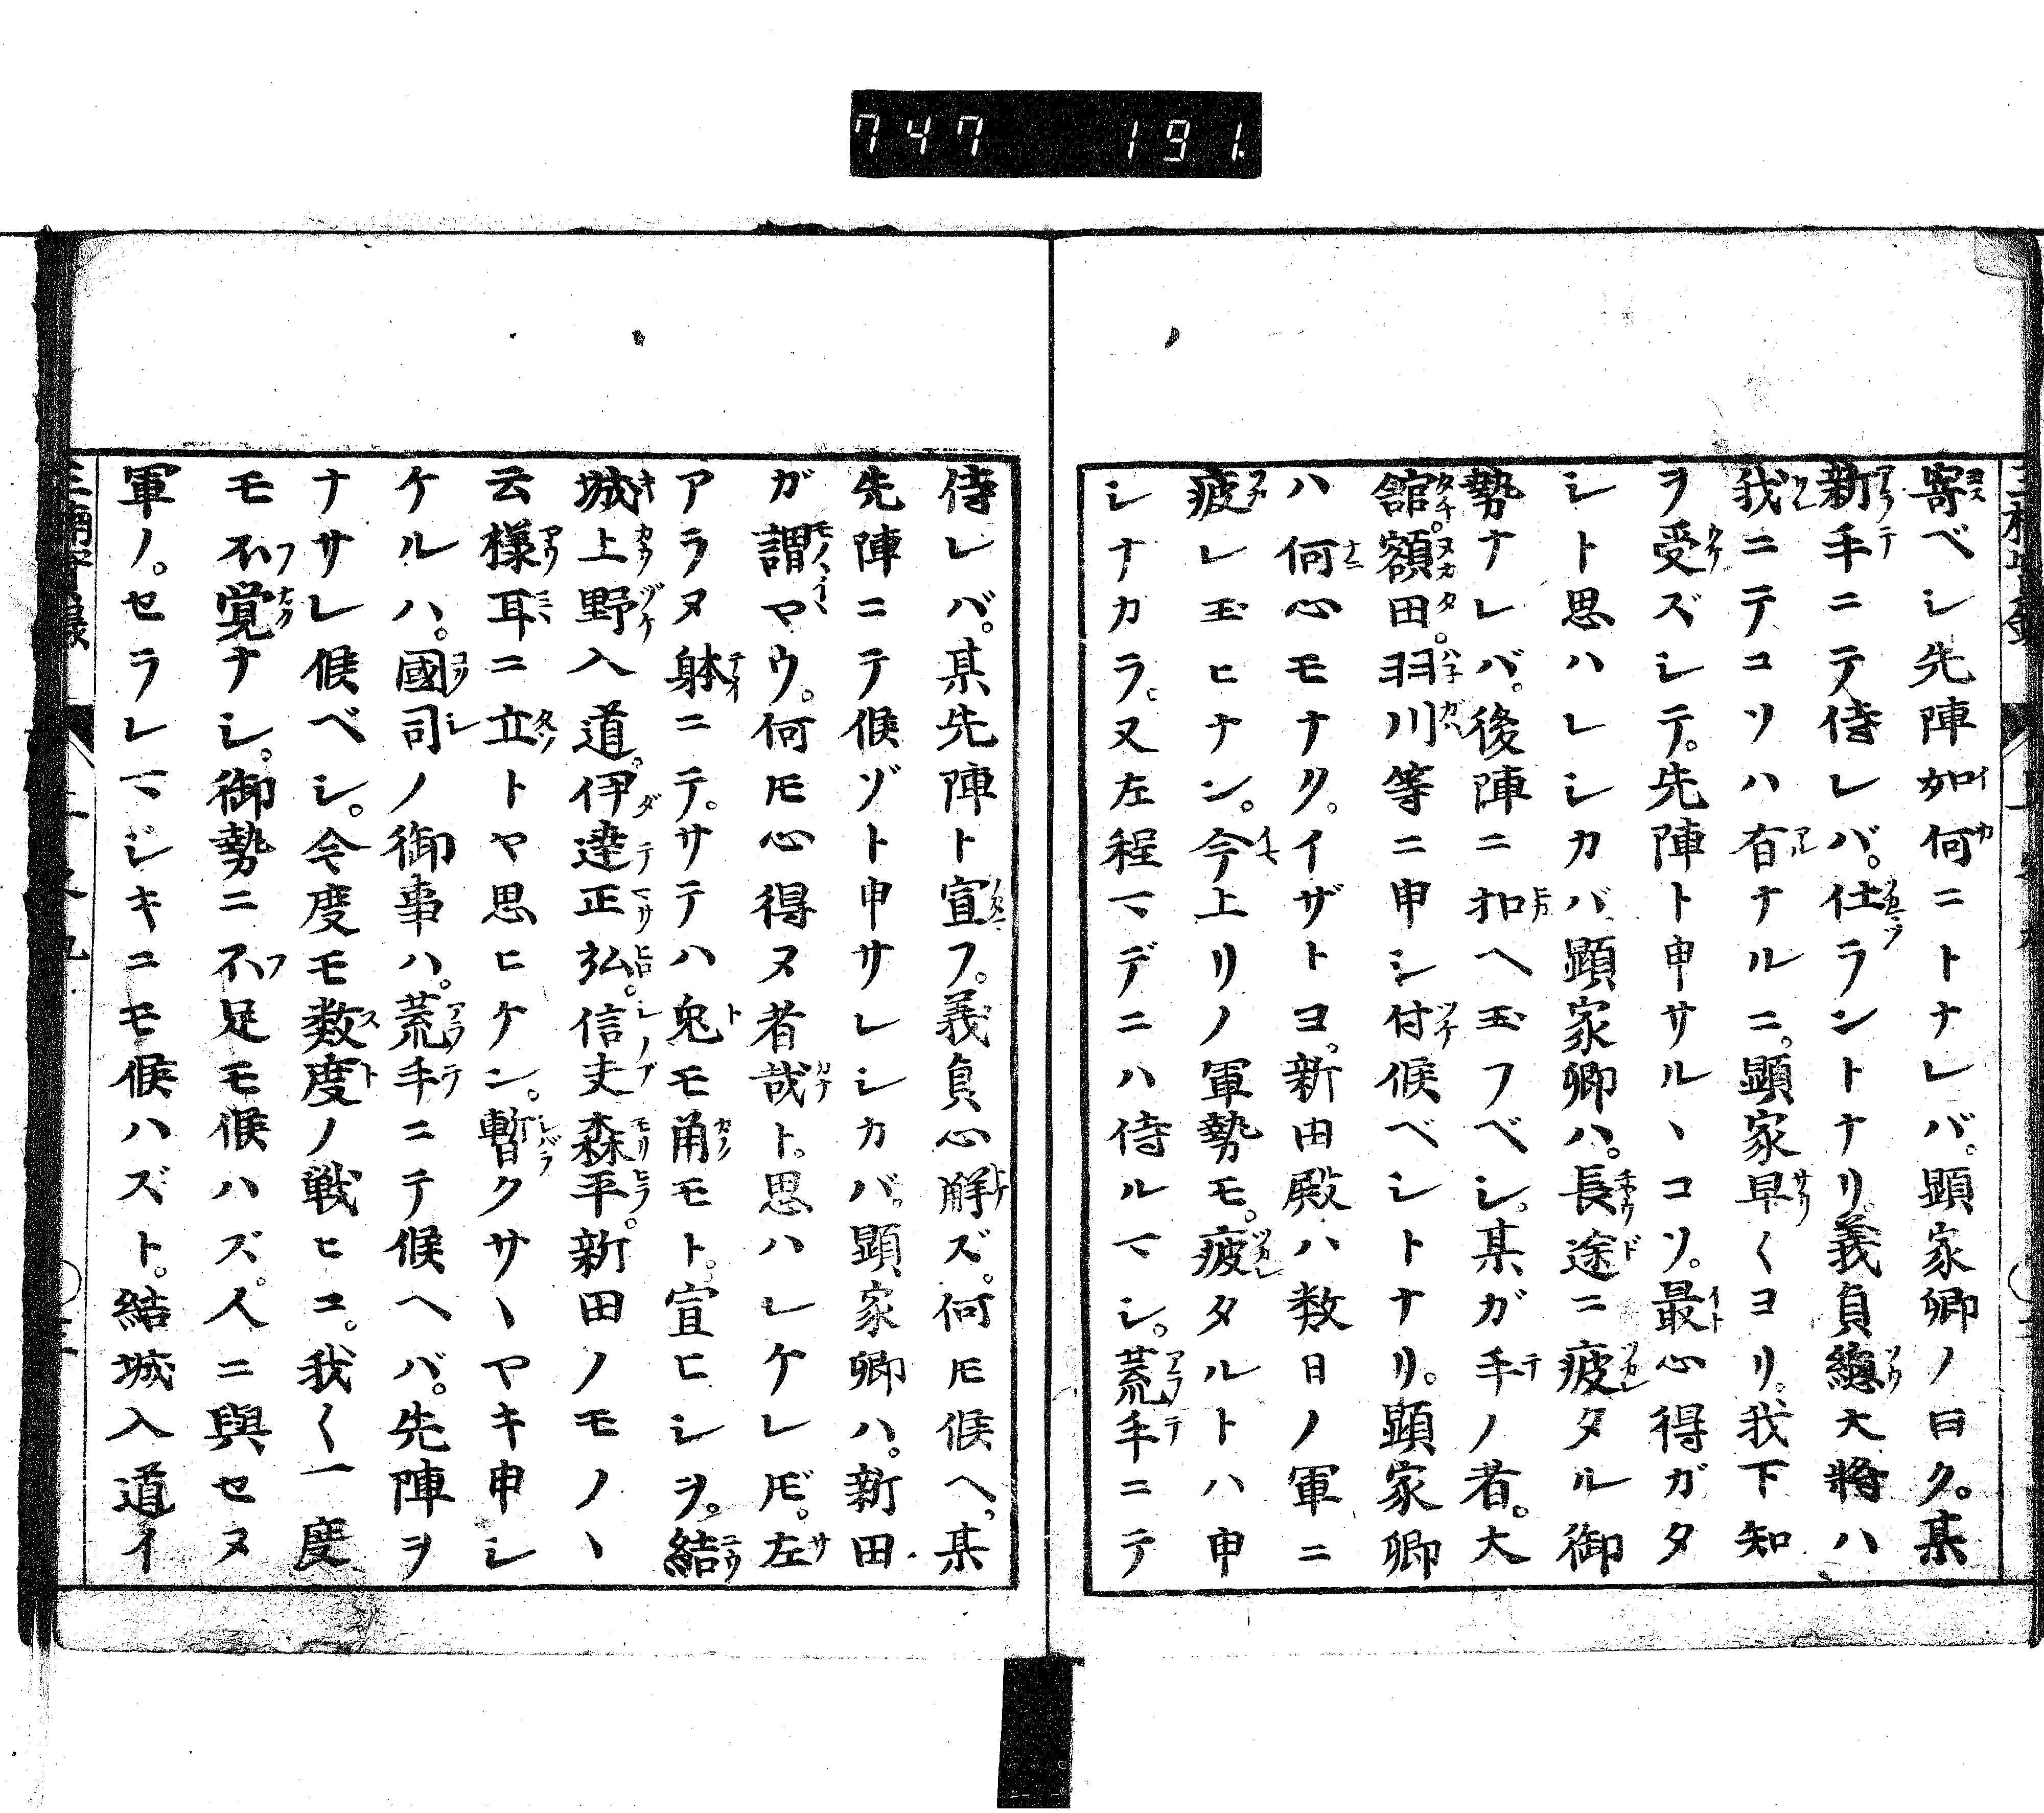 747 191
寄ベシ先陣如何ニトナレバ。顕家卿ノ曰ク。某
新手ニテ侍レバ。仕ラントナリ。義貞總大将ハ
我ニテコソハ有ナルニ。顕家早〱ヨリ。我下知
ヲ受ズシテ。先陣ト申サルヽコソ。最心得ガタ
シト思ハレシカバ顕家卿ハ。長途ニ疲タル御
勢ナレバ。後陣ニ扣ヘ玉フベシ。某ガ手ノ者。大
舘。額田。羽川等ニ申シ付候ベシトナリ。顕家卿
ハ何心モナク。イザトヨ。新田殿ハ数日ノ軍ニ
疲レ玉ヒナン。今上リノ軍勢モ。疲タルトハ申
シナカラ。又左程マデニハ侍ルマシ。荒手ニテ
侍レバ。某先陣ト宣フ。義貞心解ズ。何ㇳモ候ヘ。某
先陣ニテ候ゾト申サレシカバ。顕家卿ハ。新田
ガ謂マウ。何ㇳモ心得ヌ者哉ト。思ハレケレㇳモ。左
アラヌ躰ニテ。サテハ兎モ甬モト。宣ヒシヲ。結
城上野入道。伊達正弘。信夫森平。新田ノモノヽ
云様耳ニ立トヤ思ヒケン。暫クサヽヤキ申シ
ケルハ。國司ノ御事ハ。荒手ニテ候ヘバ。先陣ヲ
ナサレ候ベシ。今度モ数度ノ戦ヒニ。我〱一度
モ不覚ナシ。御勢ニ不足モ候ハズ。人ニ與セヌ
軍ノ。セラレマジキニモ候ハズト。結城入道イ